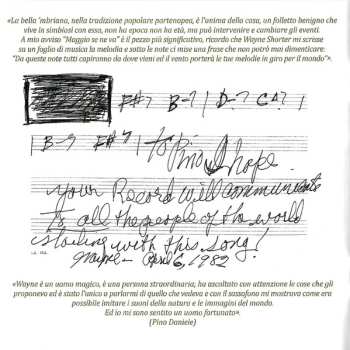 «La bella 'mbriana, nella tradizione popolare partenopea, è l'anima della casa, un folletto benigno che
vive in simbiosi con essa, non ha epoca non ha età, ma può intervenire e cambiare gli eventi.
A mio avviso "Maggio se ne va" è il pezzo più significativo, ricordo che Wayne Shorter mi scrisse
su un foglio di musica la melodia e sotto le note ci mise una frase che non potrò mai dimenticare:
"Da queste note tutti capiranno da dove vieni ed il vento porterà le tue melodie in giro per il mondo"».
F#7 B-7 | D-7 C△7 |
| B-7 F#7 |
to Pino I hope
your Record will communicate
to all the people of the world
starting with this song!
Wayne — April 6, 1982
«Wayne è un uomo magico, è una persona straordinaria, ha ascoltato con attenzione le cose che gli
proponevo ed è stato l'unico a parlarmi di quello che vedevo e con il sassofono mi mostrava come era
possibile imitare i suoni della natura e le immagini del mondo.
Ed io mi sono sentito un uomo fortunato».
(Pino Daniele)